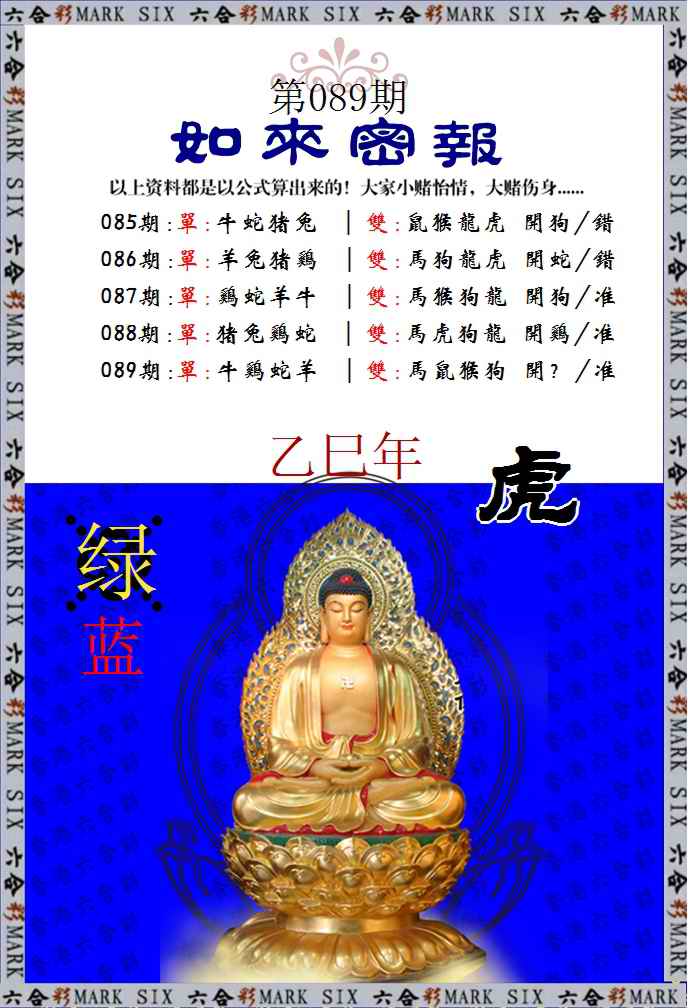 六合彩MARK SIX 六合彩MARK SIX 六合彩MARK SIX 六合彩MARK SIX
第089期
如來密報
以上资料都是以公式算出来的！大家小赌怡情，大赌伤身......
085期:單:牛蛇猪兔 |雙:鼠猴龍虎 開狗/錯
086期:單:羊兔猪鷄 |雙:馬狗龍虎 開蛇/錯
087期:單:鷄蛇羊牛 |雙:馬猴狗龍 開狗/准
088期:單:猪兔鷄蛇 |雙:馬虎狗龍 開鷄/准
089期:單:牛鷄蛇羊 |雙:馬鼠猴狗 開？/准
乙巳年
虎
绿
蓝
六合彩MARK SIX 六合彩MARK SIX 六合彩MARK SIX 六合彩MARK SIX